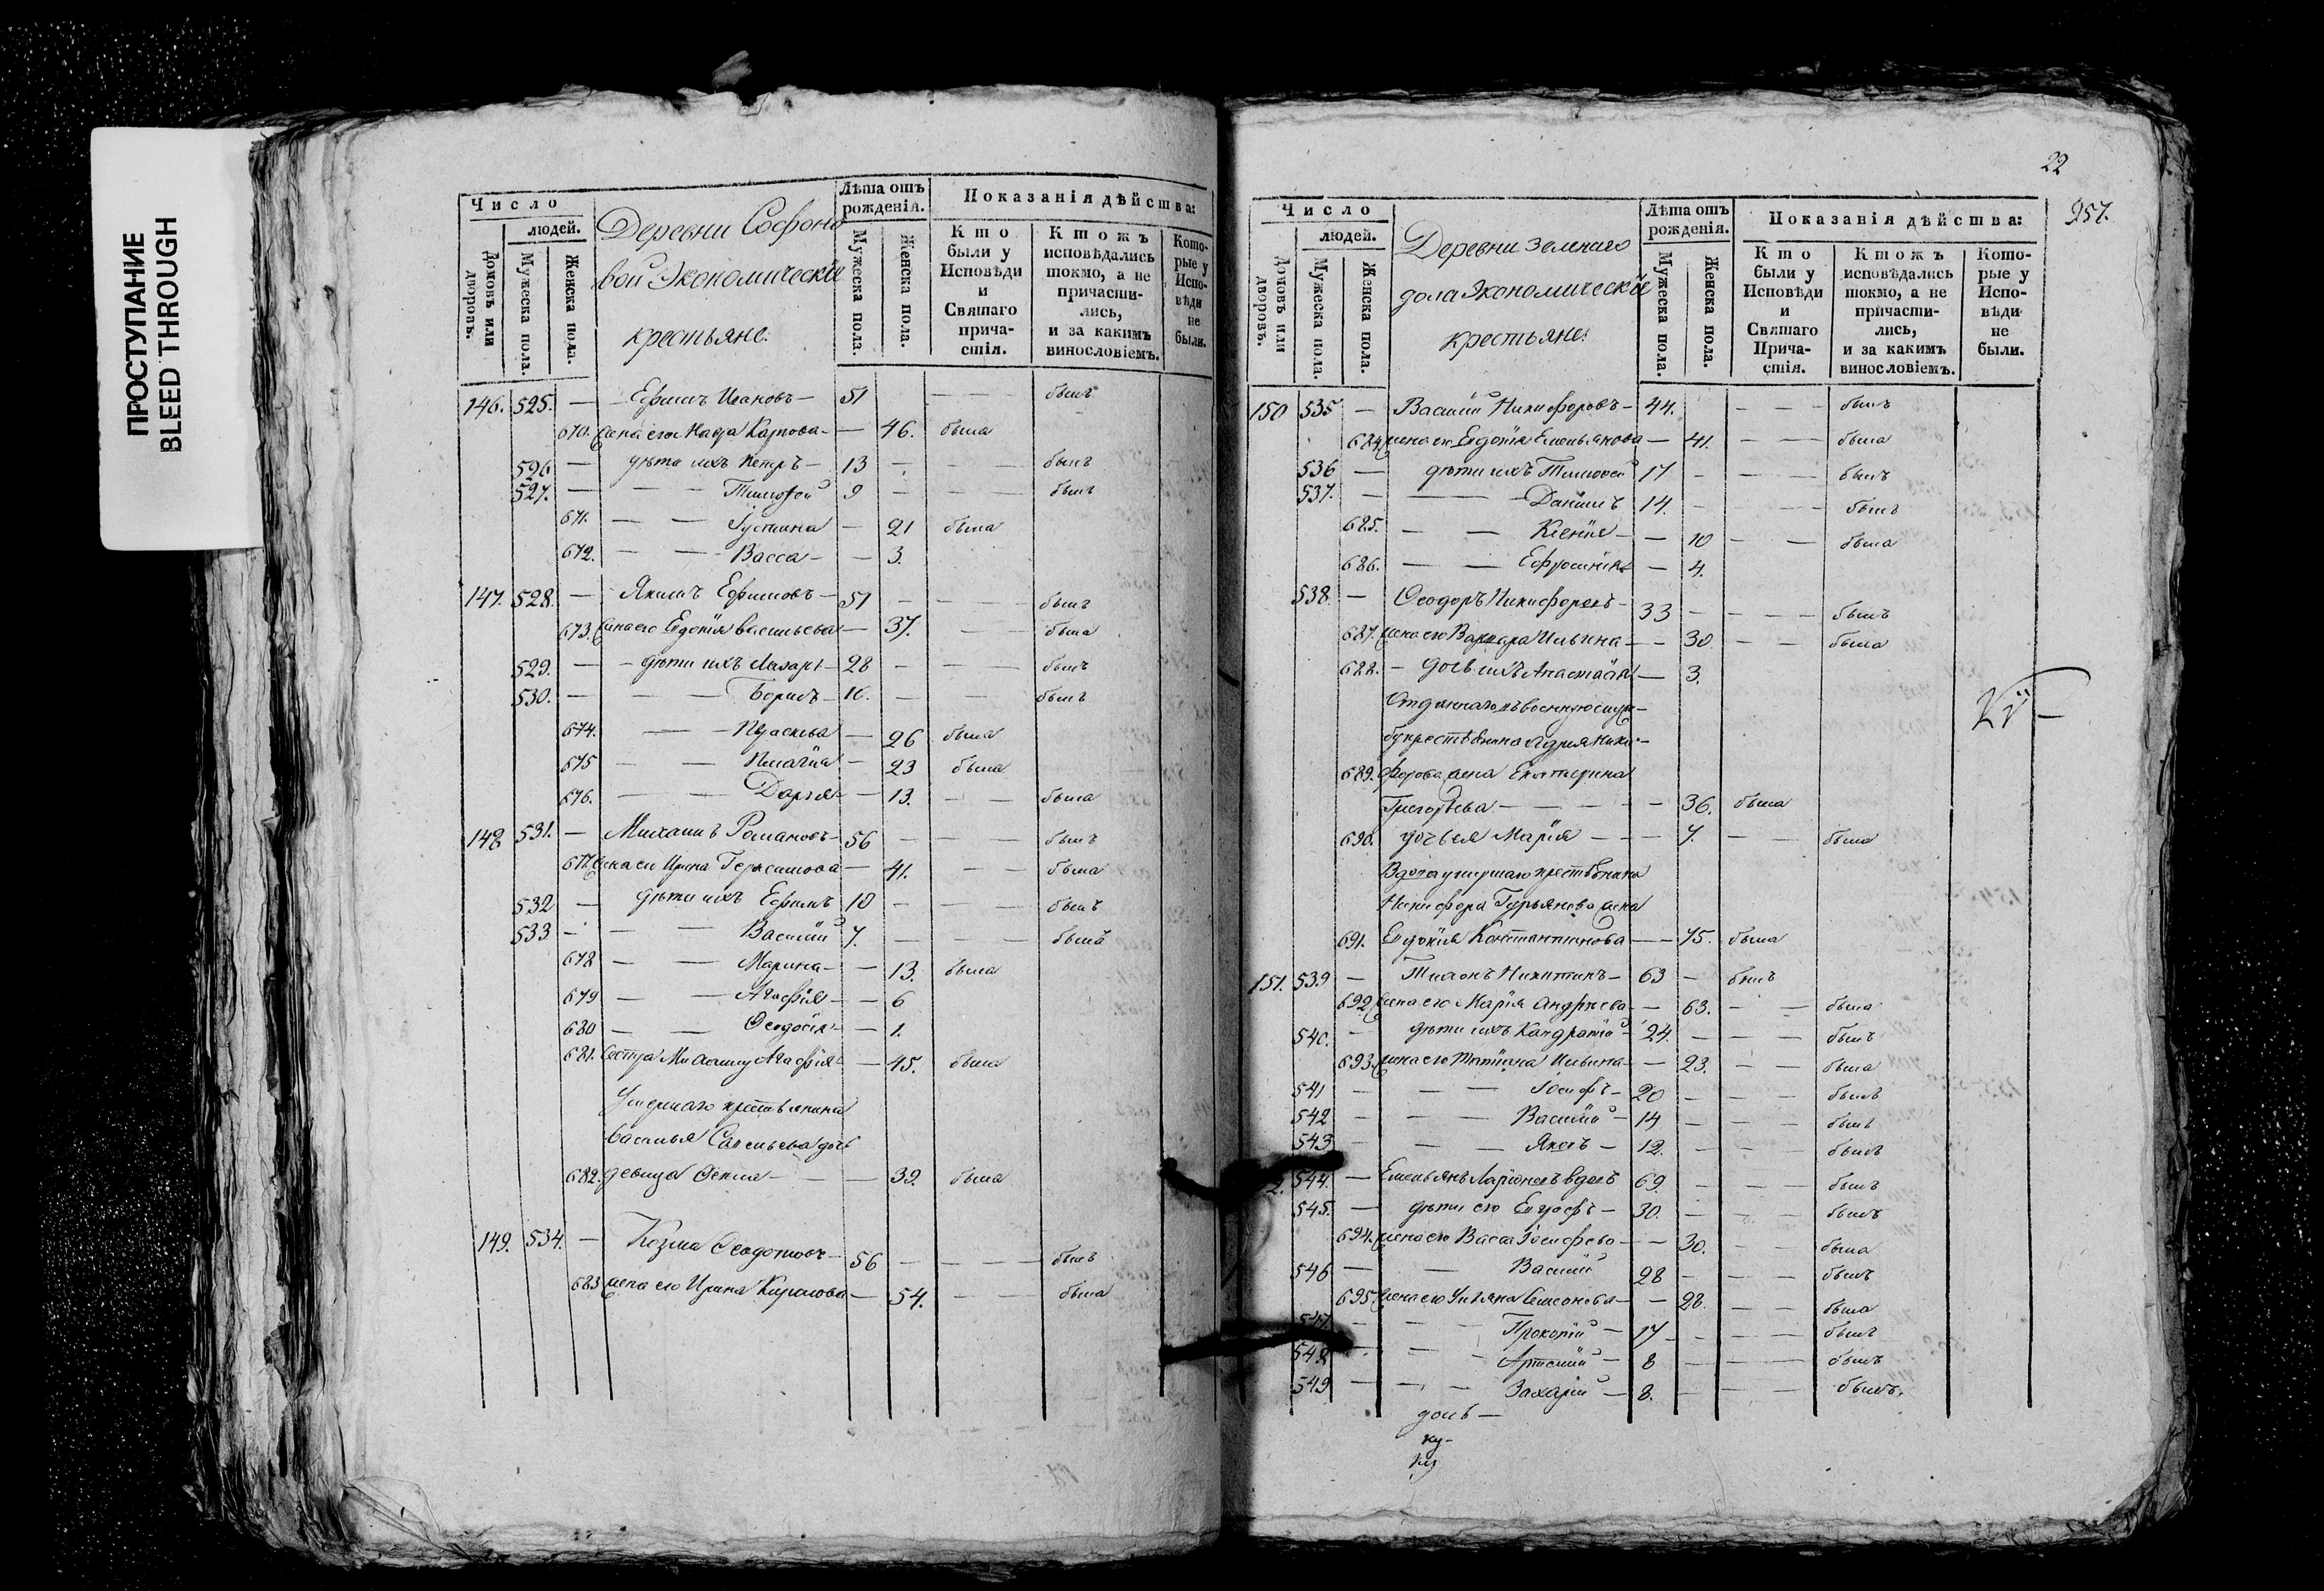 ПРОСТУПАНИЕ
BLEED THROUGH
Число
людей.
Домовъ или дворовъ.
Мужеска пола.
Женска пола.
Деревни Софоно
вой Экономическiе
крестьяне.
Лѣта отъ рожденія.
Мужеска пола.
Женска пола.
Показанія дѣйства:
Кто были у Исповѣди и Святаго причастія.
Ктожъ исповѣдались токмо, а не причастились, и за какимъ винословіемъ.
Которые у Исповѣди не были.
146. 525. — Ефимъ Ивановъ — 51 — — былъ
670. жена его Мавра Карпова — — 46. была
526 — дѣти ихъ Петръ — 13 — — — былъ
527. — — — Тимофей 9 — — — былъ
671. — — Іустина — 21 была
672. — — Васса — — 3.
147. 528. — Якимъ Ефимовъ — 51 — — — былъ
673. жена его Евдокія Васильева — 37. — — была
529. — — дѣти ихъ Лазарь — 28 — — — былъ
530. — — — Борисъ — 10. — былъ
674. — — Праскева — 26 была
675 — — Пелагіа — 23 была
676. — — Дарья — — 13. — — была
148 531. — Михаилъ Романовъ — 56 — — — былъ
677. жена его Ирина Герасимова — 41. — — была
532 — дѣти ихъ Ефимъ 10 — — — былъ
533 — — — Василій 7. — — — былъ
678 — — Марина — — 13. была
679 — — Агафія — — 6
680 — — Ѳеодосія — — 1.
681. Сестра Михаилу Агафія — 45. была
Умершаго крестьянина
Василья Савельева дочь
682. девица — — — 39. была
149. 534. — Козма Ѳеодотовъ — 56 — — — — былъ
683 жена его Ирина Кирилова — 54. — — была
22
957.
Число
людей.
Домовъ или дворовъ.
Мужеска пола.
Женска пола.
Деревни Зеленаго
дола Экономическiе
крестьяне:
Лѣта отъ рожденія.
Мужеска пола.
Женска пола.
Показанія дѣйства:
Кто были у Исповѣди и Святаго Причастія.
Ктожъ исповѣдались токмо, а не причастились, и за какимъ винословіемъ.
Которые у Исповѣди не были.
150 535 — Василій Никифоровъ — 44. — — — былъ
684 жена его Евдокія Емельянова — 41. — — была
536 — дѣти ихъ Тимофей 17 — — — былъ
537. — — — Даніилъ 14. — — — былъ
685. — — Ксенія — — 10 — — была
686. — — Ефросинія — 4.
538. — Ѳеодоръ Никифоровъ — 33 — — — былъ
687. жена его Варвара Ильина — — 30 — — была
688. — дочь ихъ Анастасія — 3.
Отданнаго въ военную служ-
бу крестьянина Ники-
689. форова жена Екатерина
Григорьева — — — — 36. была
690. дочь ея Марія — — — 7. — была
Вдова умершаго крестьянина
Никифора Гурьянова жена
691. Евдокія Константинова — — 75. была
151. 539 — Тихонъ Никитинъ — 63 — былъ
692 жена его Марія Андрѣева — — 63. — — была
540. — дѣти ихъ Кандратій — 24. — — — былъ
693. жена его Татіана Ильина — — 23. — — была
541 — — Іосифъ — 20 — — — былъ
542 — — — Василій — 14 — — — былъ
543 — — Яковъ — 12. — — — былъ
544. — Емельянъ Ларіоновъ вдовъ 69. — — — былъ
545. — дѣти его Евграфъ — 30. — — — былъ
694. жена его Васса Іосифова — — 30. — — была
546 — — Василій 28 — — — былъ
695. жена его Ульяна Семенова — — 28. — — была
547. — — — Прокопій — 17 — — — былъ
548 — — — Артемій — 8 — — — былъ
549 — — — Захарій — 8. — — — былъ.
долъ —